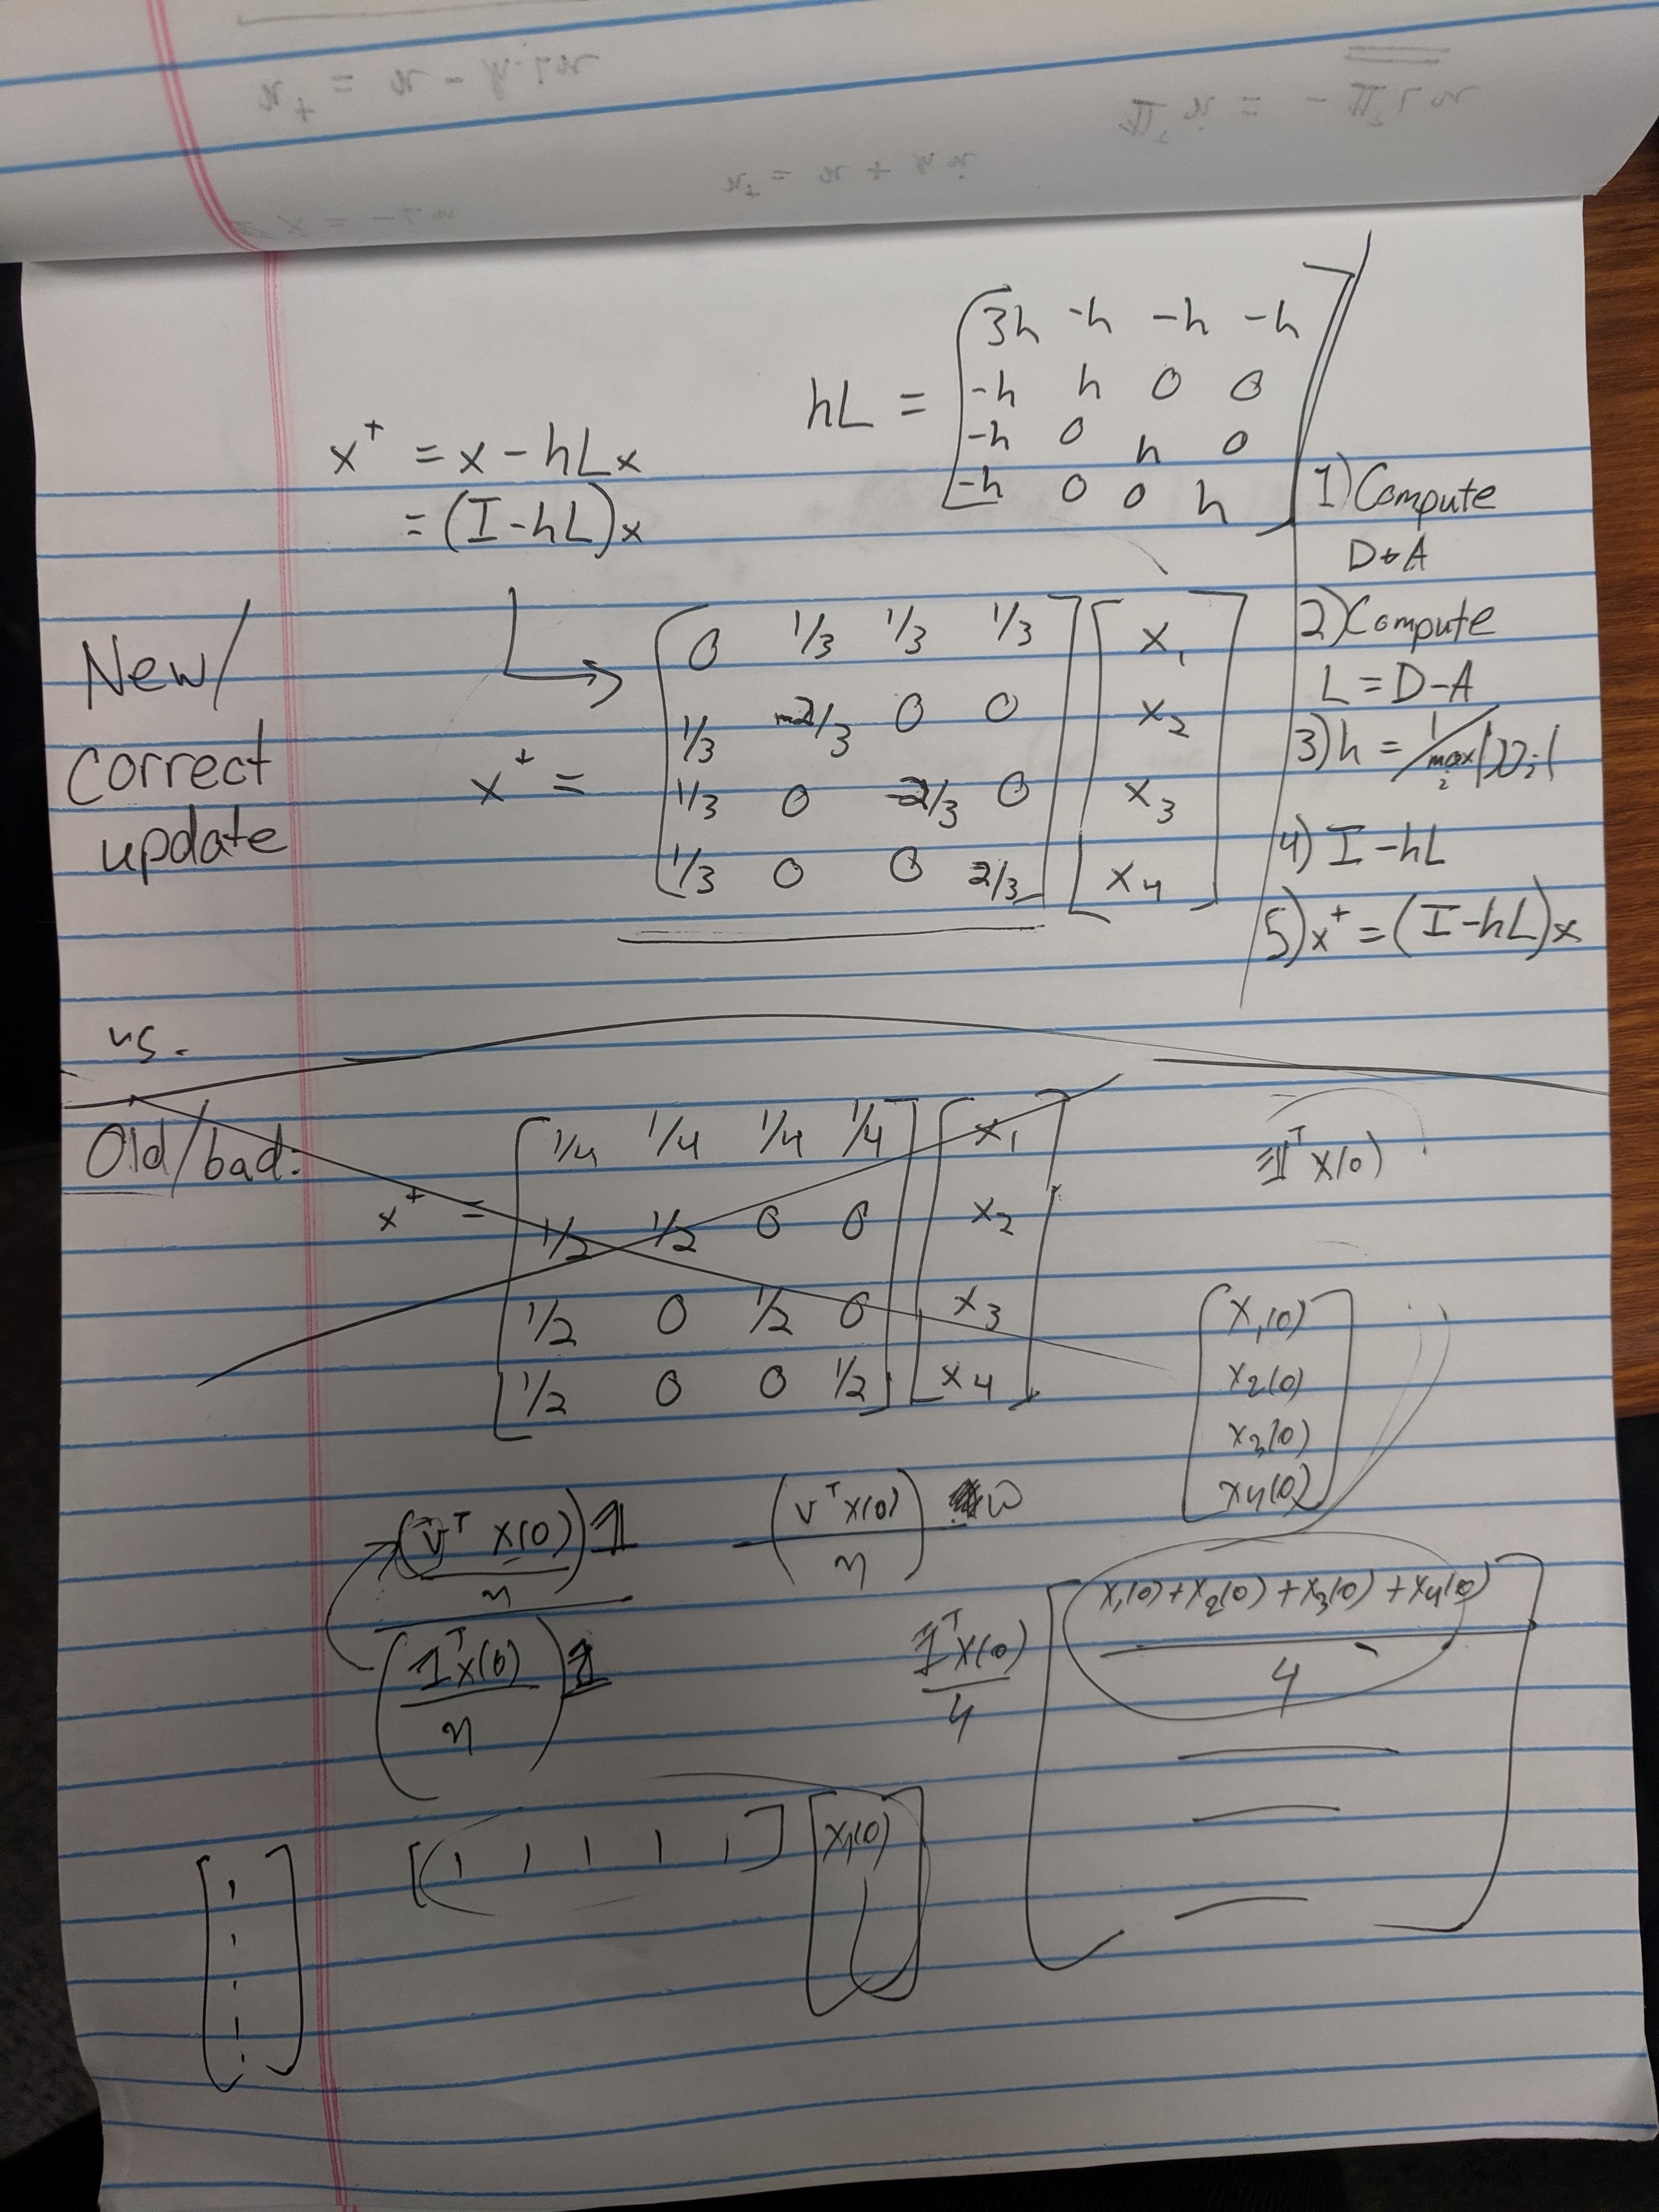 hL = [3h -h -h -h
-h h 0 0
-h 0 h 0
-h 0 0 h]
x⁺ = x - hLx
= (I - hL)x
New/
Correct
update
x⁺ = [0 1/3 1/3 1/3
1/3 2/3 0 0
1/3 0 2/3 0
1/3 0 0 2/3]
[x₁
x₂
x₃
x₄]
1) Compute
D + A
2) Compute
L = D - A
3) h = 1/
4) I - hL
5) x⁺ = (I - hL)x
vs.
Old/bad:
x⁺ = [1/4 1/4 1/4 1/4
1/2 1/2 0 0
1/2 0 1/2 0
1/2 0 0 1/2]
[x₁
x₂
x₃
x₄]
𝟙ᵀ x(0)
[x₁(0)
x₂(0)
x₃(0)
x₄(0)]
(vᵀ x(0) / n) 𝟙
(vᵀ x(0) / n) w
(𝟙ᵀ x(0) / n) 𝟙
𝟙ᵀ x(0) / 4
[x₁(0) + x₂(0) + x₃(0) + x₄(0)
4]
[1 1 1 1 1] [x₁(0)]